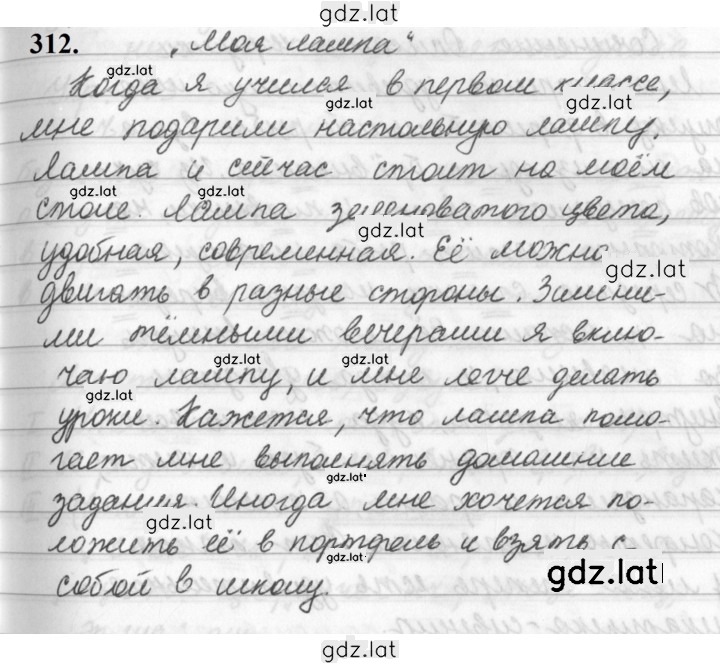 gdz.lat
312. „Моя лампа“
gdz.lat
Когда я учился в первом классе,
gdz.lat gdz.lat
мне подарили настольную лампу.
Лампа и сейчас стоит на моём
gdz.lat gdz.lat
столе. Лампа зеленоватого цвета,
gdz.lat
удобная, современная. Её можно
gdz.lat
двигать в разные стороны. Зимни-
ми тёмными вечерами я вклю-
gdz.lat gdz.lat
чаю лампу, и мне легче делать
gdz.lat
уроки. Кажется, что лампа помо-
гает мне выполнять домашние
gdz.lat
задания. Иногда мне хочется по-
gdz.lat
ложить её в портфель и взять с
gdz.lat
собой в школу.
gdz.lat
gdz.lat